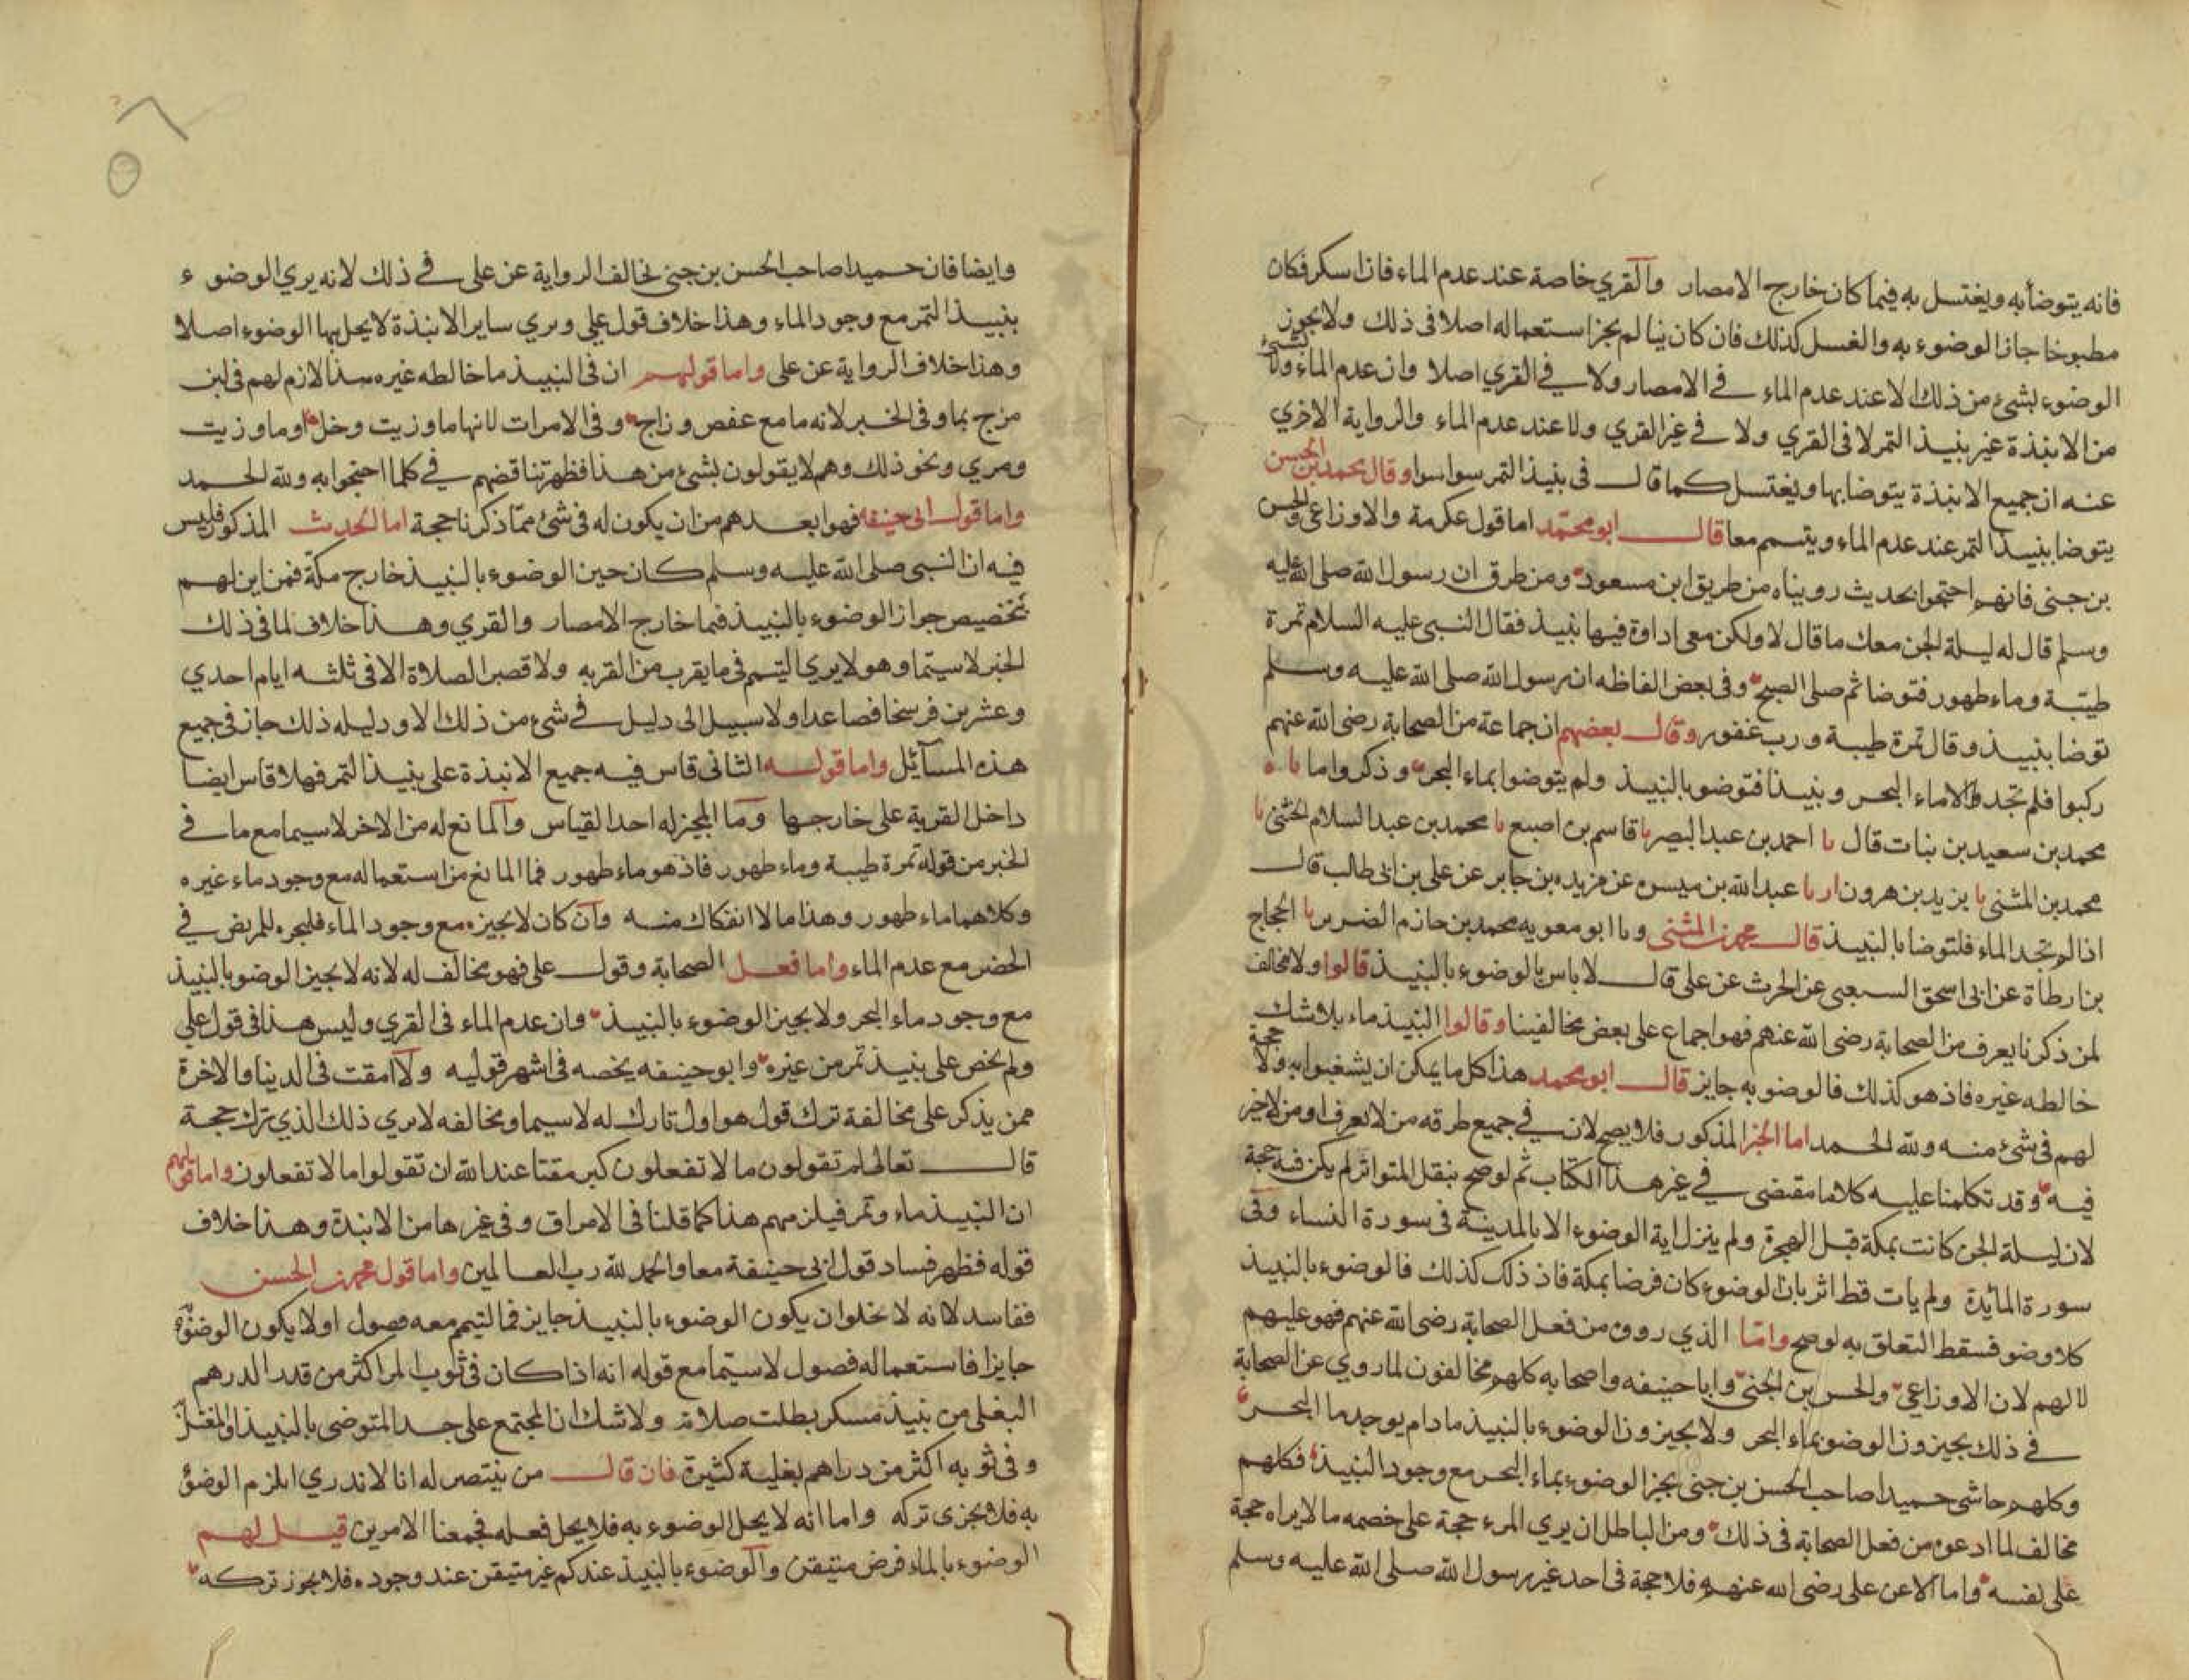 فانه يتوضأ به ويغتسل به فيما كان خارج الامصار والقري خاصة عند عدم الماء فان اسكر فكان
مطبوخا جاز الوضوء به والغسل كذلك فان كان نيا لم يجز استعماله اصلا فى ذلك ولا يجوز
الوضوء بشئ من ذلك الا عند عدم الماء في الامصار ولا في القري اصلا وان عدم الماء ولا بشئ
من الانبذة غير بنيذ التمر لا فى القري ولا في غير القري ولا عند عدم الماء والرواية الاخري
عنه ان جميع الانبذة يتوضا بها ويغتسل كما قال فى بنيذ التمر سوا سوا وقال محمد بن الحسن
يتوضا بنبيذ التمر عند عدم الماء ويتيمم معا قال ابو محمد اما قول عكرمة والاوزاعي والحسن
بن حينى فانهم احتجوا بحديث رويناه من طريق ابن مسعود ومن طرق ان رسول الله صلى الله عليه
وسلم قال له ليلة الجن معك ما قال لا ولكن معى اداوة فيها نبيذ فقال النبى عليه السلام تمرة
طيبة وماء طهور فتوضا ثم صلى الصبح وفى بعض الفاظه ان رسول الله صلى الله عليه وسلم
توضا بنبيذ وقال تمرة طيبة ورب غفور وقال بعضهم ان جماعة من الصحابة رضى الله عنهم
ركبوا فلم تجد الا ماء البحر ونبيذا فتوضو بالنبيذ ولم يتوضوا بماء البحر وذكروا ما نا ه
محمد بن سعيد بن نبات قال نا احمد بن عبد البصير نا قاسم بن اصبع نا محمد بن عبد السلام الخشنى نا
محمد بن المثنى نا يزيد بن هرون ار نا عبد الله بن ميسره عن مزيده بن جابر عن على بن ابى طالب قال
اذا لم تجد الماء فلتوضا بالنبيذ قال محمد بن المثنى ونا ابو معويه محمد بن حازم الضرير نا الحجاج
بن ارطاة عن ابى اسحق السبعى عن الحرث عن على قال لا باس بالوضوء بالنبيذ قالوا ولا مخالف
لمن ذكرنا يعرف من الصحابة رضى الله عنهم فهو اجماع على بعض مخالفينا وقالوا النبيذ ماء بلا شك
خالطه غيره فاذ هو كذلك فالوضو به جايز قال ابو محمد هذا كل ما يمكن ان يشغبوا به ولا حجة
لهم فى شئ منه ولله الحمد اما الخبر المذكور فلا يصح لان في جميع طرقه من لا يعرف او من لا خير
فيه وقد تكلمنا عليه كلاما مقتضى في غير هذا الكتاب ثم لو صح بنقل المتواتر لم يكن فيه حجة
لان ليلة الجن كانت بمكة قبل الهجرة ولم ينزل اية الوضوء الا بالمدينة فى سورة النساء وفى
سورة المائدة ولم يات قط اثر بان الوضوء كان فرضا بمكة فاذ ذلك كذلك فالوضوء بالنبيذ
كلا وضو فسقط التعلق به لو صح واما الذي رووه من فعل الصحابة رضى الله عنهم فهو عليهم
لا لهم لان الاوزاعي والحسن بن الجنى وابا حنيفه واصحابه كلهم مخالفون لما روي عن الصحابة
في ذلك يجيزون الوضو بماء البحر ولا يجيزون الوضوء بالنبيذ ما دام يوجد ما البحر
وكلهم حاشى حميدا صاحب الحسن بن جنى يجز الوضوء بماء البحر مع وجود النبيذ فكلهم
مخالف لما ادعوه من فعل الصحابة فى ذلك ومن الباطل ان يري المرء حجة على خصمه ما لا يراه حجة
على نفسه واما الاعن على رضى الله عنهم فلا حجة فى احد غير رسول الله صلى الله عليه وسلم
وايضا فان حميدا صاحب الحسن بن جنى يخالف الرواية عن على في ذلك لانه يري الوضوء
بنبيذ التمر مع وجود الماء وهذا خلاف قول على ويري ساير الانبذة لا يحل بها الوضوء اصلا
وهذا خلاف الرواية عن على واما قولهم ان فى النبيذ ما خالطه غيره هذا لازم لهم فى لبن
مزج بما وفى الخبر لانه ما مع عفص وزاج وفى الامرات لانها ما وزيت وخل او ما وزيت
ومري ونحو ذلك وهم لا يقولون بشئ من هذا فظهر تناقضهم في كلما احتجوا به ولله الحمد
واما قول ابى حنيفه فهو ابعدهم من ان يكون له فى شئ مما ذكرنا حجة اما الحديث المذكور فليس
فيه ان النبى صلى الله عليه وسلم كان حين الوضوء بالنبيذ خارج مكة فمن اين لهم
تخصيص جواز الوضوء بالنبيذ فيما خارج الامصار والقري وهذا خلاف لما فى ذلك
الخبر لا سيما وهو لا يري التيمم فى ما يقرب من القريه ولا قصر الصلاة الا فى ثلثه ايام احدي
وعشرين فرسخا فصاعدا ولا سبيل الى دليل في شئ من ذلك الا ودليله ذلك جاز فى جميع
هذه المسائل واما قوله الثانى قاس فيه جميع الانبذة على بنيذ التمر فهلا قاس ايضا
داخل القرية على خارجها وما المجيز له احد القياس والمانع له من الاخر لا سيما مع ما في
الخبر من قوله تمرة طيبة وماء طهور فاذ هو ماء طهور فما المانع من استعماله مع وجود ماء غيره
وكلاهما ماء طهور وهذا ما لا انفكاك منه وان كان لا يجيزه مع وجود الماء فليجره للمريض في
الحضر مع عدم الماء واما فعل الصحابة وقول على فهو مخالف له لانه لا يجيز الوضو بالنبيذ
مع وجود ماء البحر ولا يجيز الوضوء بالنبيذ وان عدم الماء فى القري وليس هذا فى قول على
ولم يخص على بنيذ تمر من غيره وابو حنيفه يخصه فى اشهر قوليه ولا امقت فى الدنيا والاخرة
ممن يذكر على مخالفة ترك قول هو اول تارك له لا سيما ومخالفه لا يري ذلك الذي ترك حجة
قال تعالى لم تقولون ما لا تفعلون كبر مقتا عند الله ان تقولوا ما لا تفعلون واما قولهم
ان النبيذ ماء وتمر فيلزمهم هذا كما قلنا فى الامراق وفى غيرها من الانبذة وهذا خلاف
قوله فظهر فساد قول ابى حنيفة معا والحمد لله رب العالمين واما قول محمد بن الحسن
ففاسد لانه لا يخلو ان يكون الوضوء بالنبيذ جايز فالتيمم معه فصول او لا يكون الوضوء
جايزا فاستعماله فصول لا سيما مع قوله انه اذا كان فى ثوب المر اكثر من قدر الدرهم
البغلى من نبيذ مسكر بطلت صلاته ولا شك ان المجتمع على جسد المتوضى بالنبيذ او المغتسل
وفى ثوبه اكثر من دراهم بغلية كثيرة فان قال من ينتصر له انا لا ندري ايلزم الوضوء
به فلا يجزى تركه واما انه لا يحل الوضوء به فلا يحل فعله فجمعنا الامرين قيل لهم
الوضوء بالماء فرض متيقن والوضوء بالنبيذ عندكم غير متيقن عند وجوده فلا يجوز تركه